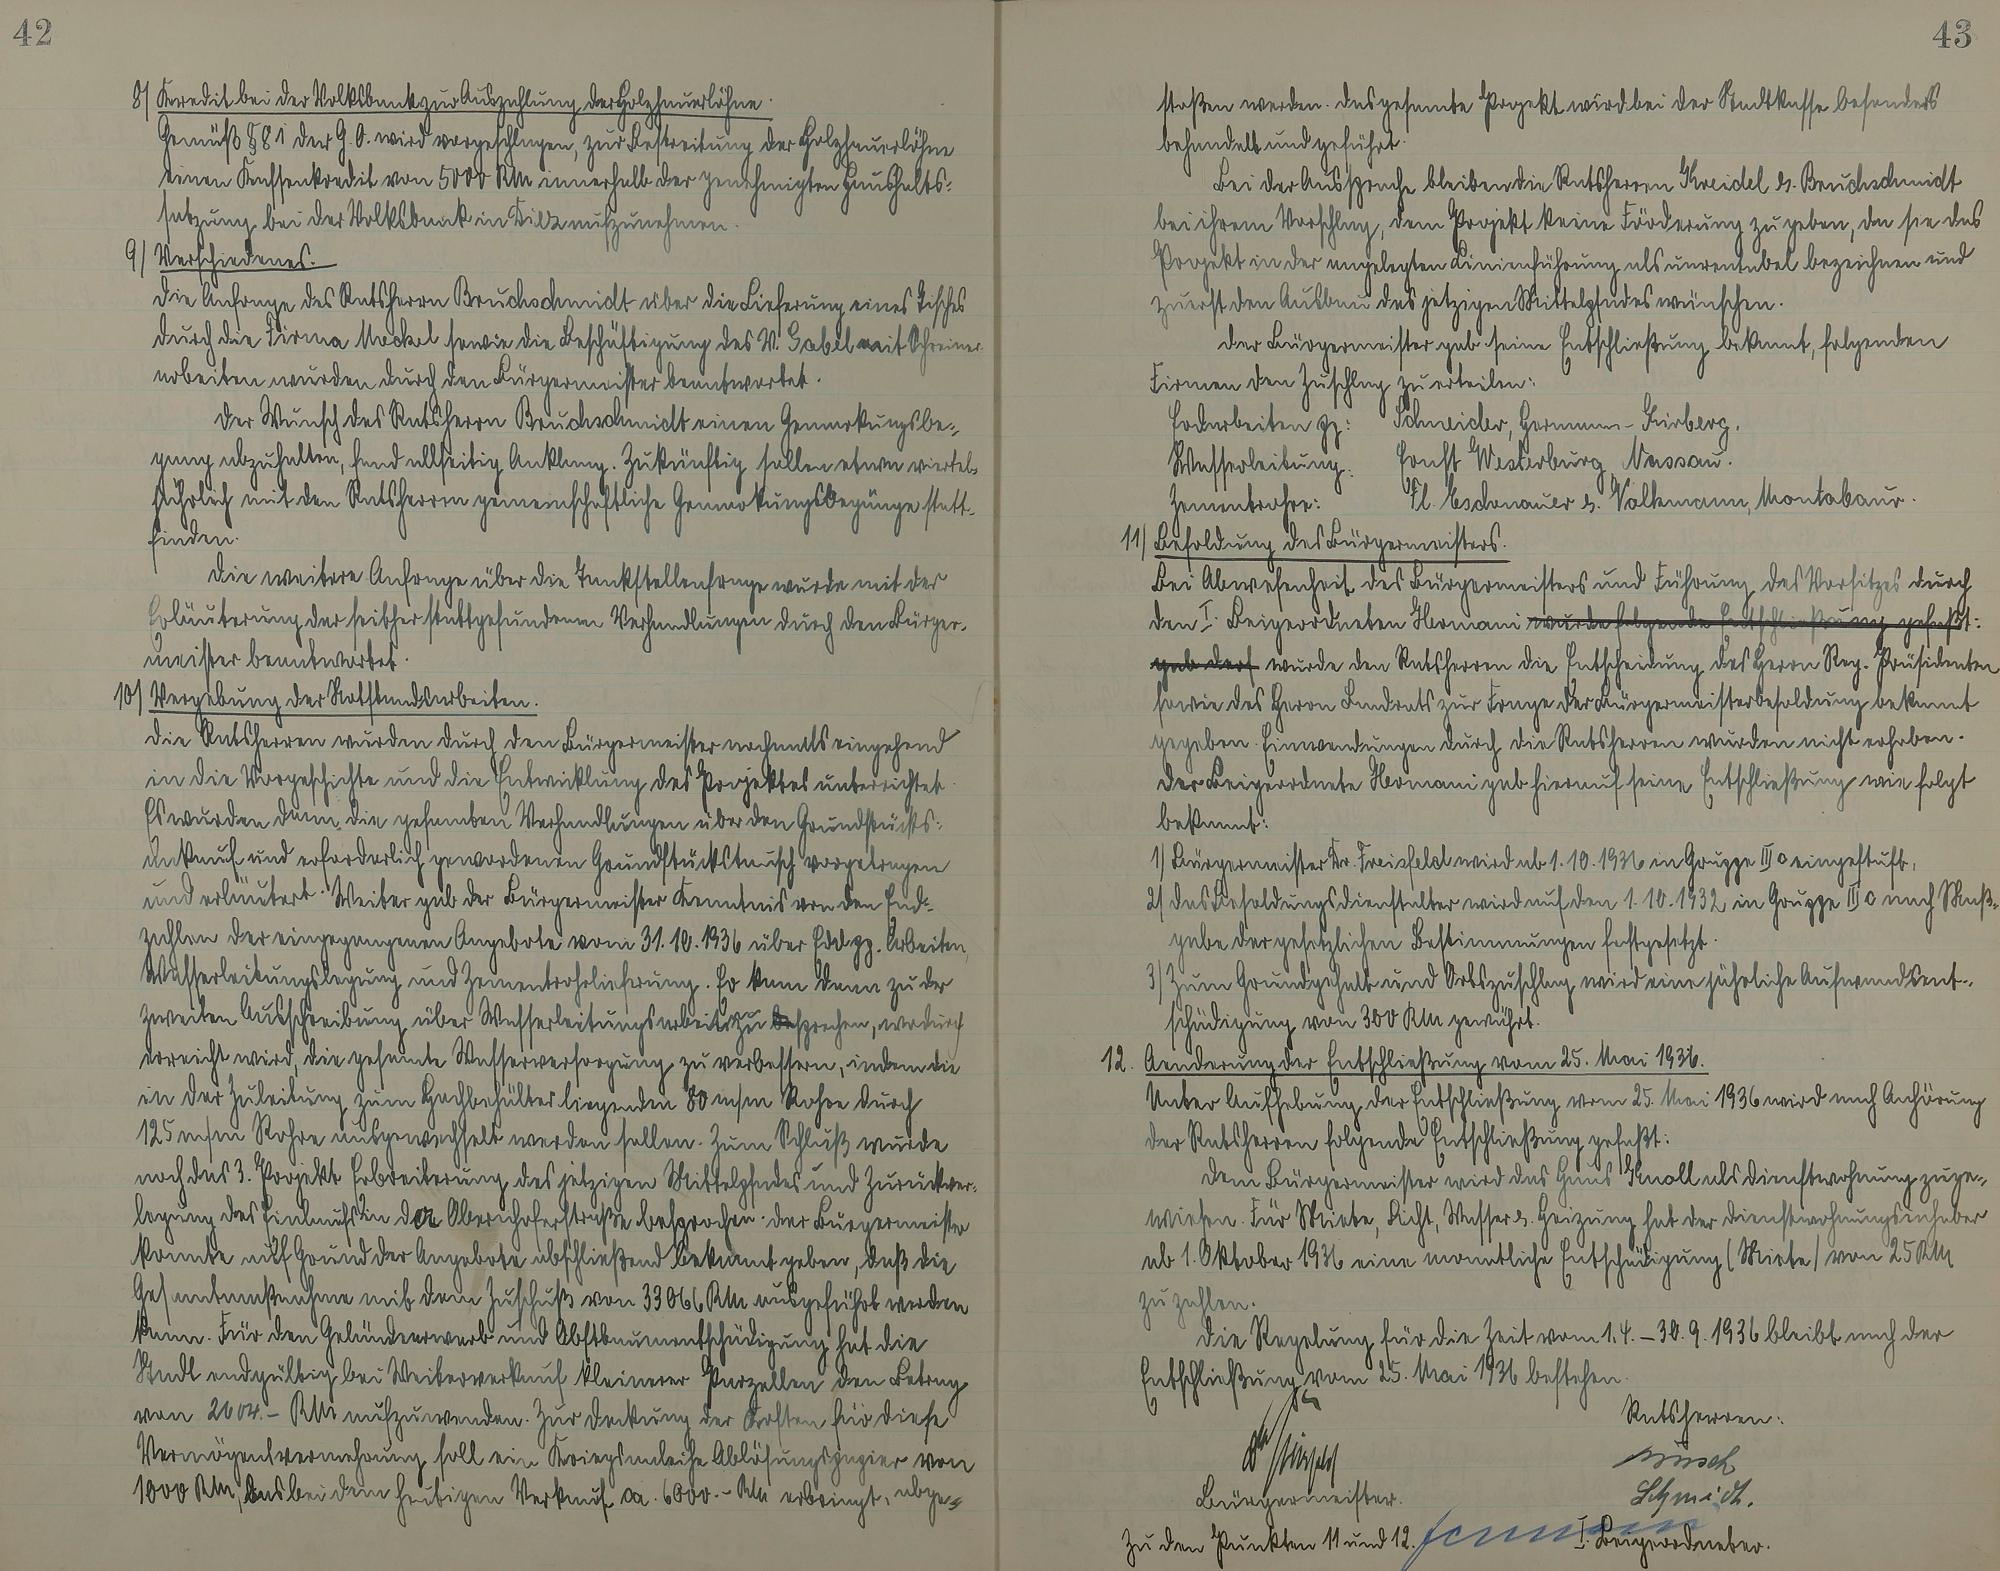 42
8) Kredit bei der Volksbank zur Auszahlung der Holzhauerlöhne.
Gemäß § 81 der G.O. wird vorgeschlagen, zur Bestreitung der Holzhauerlöhne
einen Kassenkredit von 5000 RM innerhalb der genehmigten Haushalts-
satzung bei der Volksbank in Diez aufzunehmen.
9) Verschiedenes.
Die Anfrage des Ratsherrn Bruchschmidt über die Lieferung eines Tisches
durch die Firma Meckel sowie die Beschäftigung des W. Gabel mit Schreiner-
arbeiten wurden durch den Bürgermeister beantwortet.
Der Wunsch des Ratsherrn Bruchschmidt einen Gemarkungsbe-
gang abzuhalten, fand allseitig Anklang. Zukünftig sollen etwa viertel-
jährlich mit den Ratsherrn gemeinschaftliche Gemarkungsbegänge statt-
finden.
Die weitere Anfrage über die Tankstellenfrage wurde mit der
Erläuterung der seither stattgefundenen Verhandlungen durch den Bürger-
meister beantwortet.
10) Vergebung der Notstandsarbeiten.
Die Ratsherren wurden durch den Bürgermeister nochmals eingehend
in die Vorgeschichte und die Entwicklung des Projektes unterrichtet.
Es wurden dann die gesamten Verhandlungen über den Grundstücks-
ankauf und erforderlich gewordenen Grundstückstausch vorgetragen
und erläutert. Weiter gab der Bürgermeister Kenntnis von den End-
zahlen der eingegangenen Angebote vom 31.10.1936 über Erd pp. Arbeiten,
Wasserleitungslegung und Zementrohrlieferung. Er kam dann zu der
zweiten Ausschreibung über Wasserleitungsarbeit zu sprechen, wodurch
erreicht wird, die gesamte Wasserversorgung zu verbessern, indem die
in der Zuleitung zum Hochbehälter liegenden 80 m/m Rohre durch
125 m/m Rohre ausgewechselt werden sollen. Zum Schluß wurde
noch das 3. Projekt Erbreiterung des jetzigen Mittelpfades und Zurückver-
legung des Einlaufs in der Obernhoferstraße besprochen. Der Bürgermeister
konnte auf Grund der Angebote abschließend bekannt geben, daß die
Gesamtmaßnahme mit dem Zuschuß von 33066 RM ausgeführt werden
kann. Für den Geländeerwerb und Obstbaumentschädigung hat die
Stadt endgültig bei Weiterverkauf kleinerer Parzellen den Betrag
von 2604.- RM aufzuwenden. Zur Deckung der Kosten für diese
Vermögensvermehrung soll ein Kriegsanleihe Ablösungspapier von
1000 RM, das bei dem heutigen Verkauf ca. 6000.- RM erbringt, abge-
43
stoßen werden. Das gesamte Projekt wird bei der Stadtkasse besonders
behandelt und geführt.
Bei der Aussprache bleiben die Ratsherren Kreidel u. Bruchschmidt
bei ihrem Vorschlag, dem Projekt keine Förderung zu geben, da sie das
Projekt in der angelegten Linienführung als unrentabel bezeichnen und
zuerst den Ausbau des jetzigen Mittelpfades wünschen.
Der Bürgermeister gab seine Entschließung bekannt, folgenden
Firmen den Zuschlag zu erteilen:
Erdarbeiten pp: Schneider, Hermann - Kirberg.
Wasserleitung: Ernst Westerburg Nassau.
Zementrohre: Fl. Eschenauer u. Volkmann, Montabaur.
11) Besoldung des Bürgermeisters.
Bei Abwesenheit des Bürgermeisters und Führung des Vorsitzes durch
den I. Beigeordneten Hermani wurde folgende Entschließung gefaßt:
gab der wurde den Ratsherren die Entscheidung des Herrn Reg. Präsidenten
sowie des Herrn Landrats zur Frage der Bürgermeisterbesoldung bekannt
gegeben. Einwendungen durch die Ratsherren wurden nicht erhoben.
Der Beigeordnete Hermani gab hierauf seine Entschließung wie folgt
bekannt:
1) Bürgermeister Dr. Freisfeld wird ab 1.10.1936 in Gruppe III c eingestuft,
2) das Besoldungsdienstalter wird auf den 1.10.1932 in Gruppe III c nach Maß-
gabe der gesetzlichen Bestimmungen festgesetzt.
3) Zum Grundgehalt und Ortszuschlag wird eine jährliche Aufwandsent-
schädigung von 300 RM gewährt.
12. Aenderung der Entschließung vom 25. Mai 1936.
Unter Aufhebung der Entschließung vom 25. Mai 1936 wird nach Anhörung
der Ratsherren folgende Entschließung gefaßt:
Dem Bürgermeister wird das Haus Knoll als Dienstwohnung zuge-
wiesen. Für Miete, Licht, Wasser u. Heizung hat der Dienstwohnungsinhaber
ab 1. Oktober 1936 eine monatliche Entschädigung (Miete) von 25 RM
zu zahlen.
Die Regelung für die Zeit vom 1.4. – 30.9.1936 bleibt nach der
Entschließung vom 25. Mai 1936 bestehen.
Ratsherren:
Schmidt.
Bürgermeister.
Zu den Punkten 11 und 12. I. Beigeordneter.